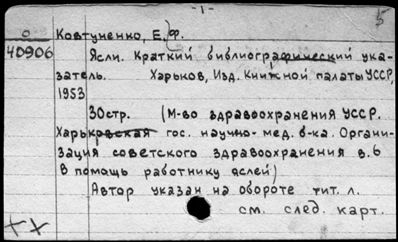 -1-
5
О
40906
Ковтуненко, Е.Ф.
Ясли. Краткий библиографический ука-
затель. Харьков, Изд. Книжной палаты УССР,
1953
30стр. (М-во здравоохранения УССР.
Харьковская гос. научно-мед. б-ка. Органи-
зация советского здравоохранения в.6
В помощь работнику яслей)
Автор указан на обороте тит. л.
см. след. карт.
++